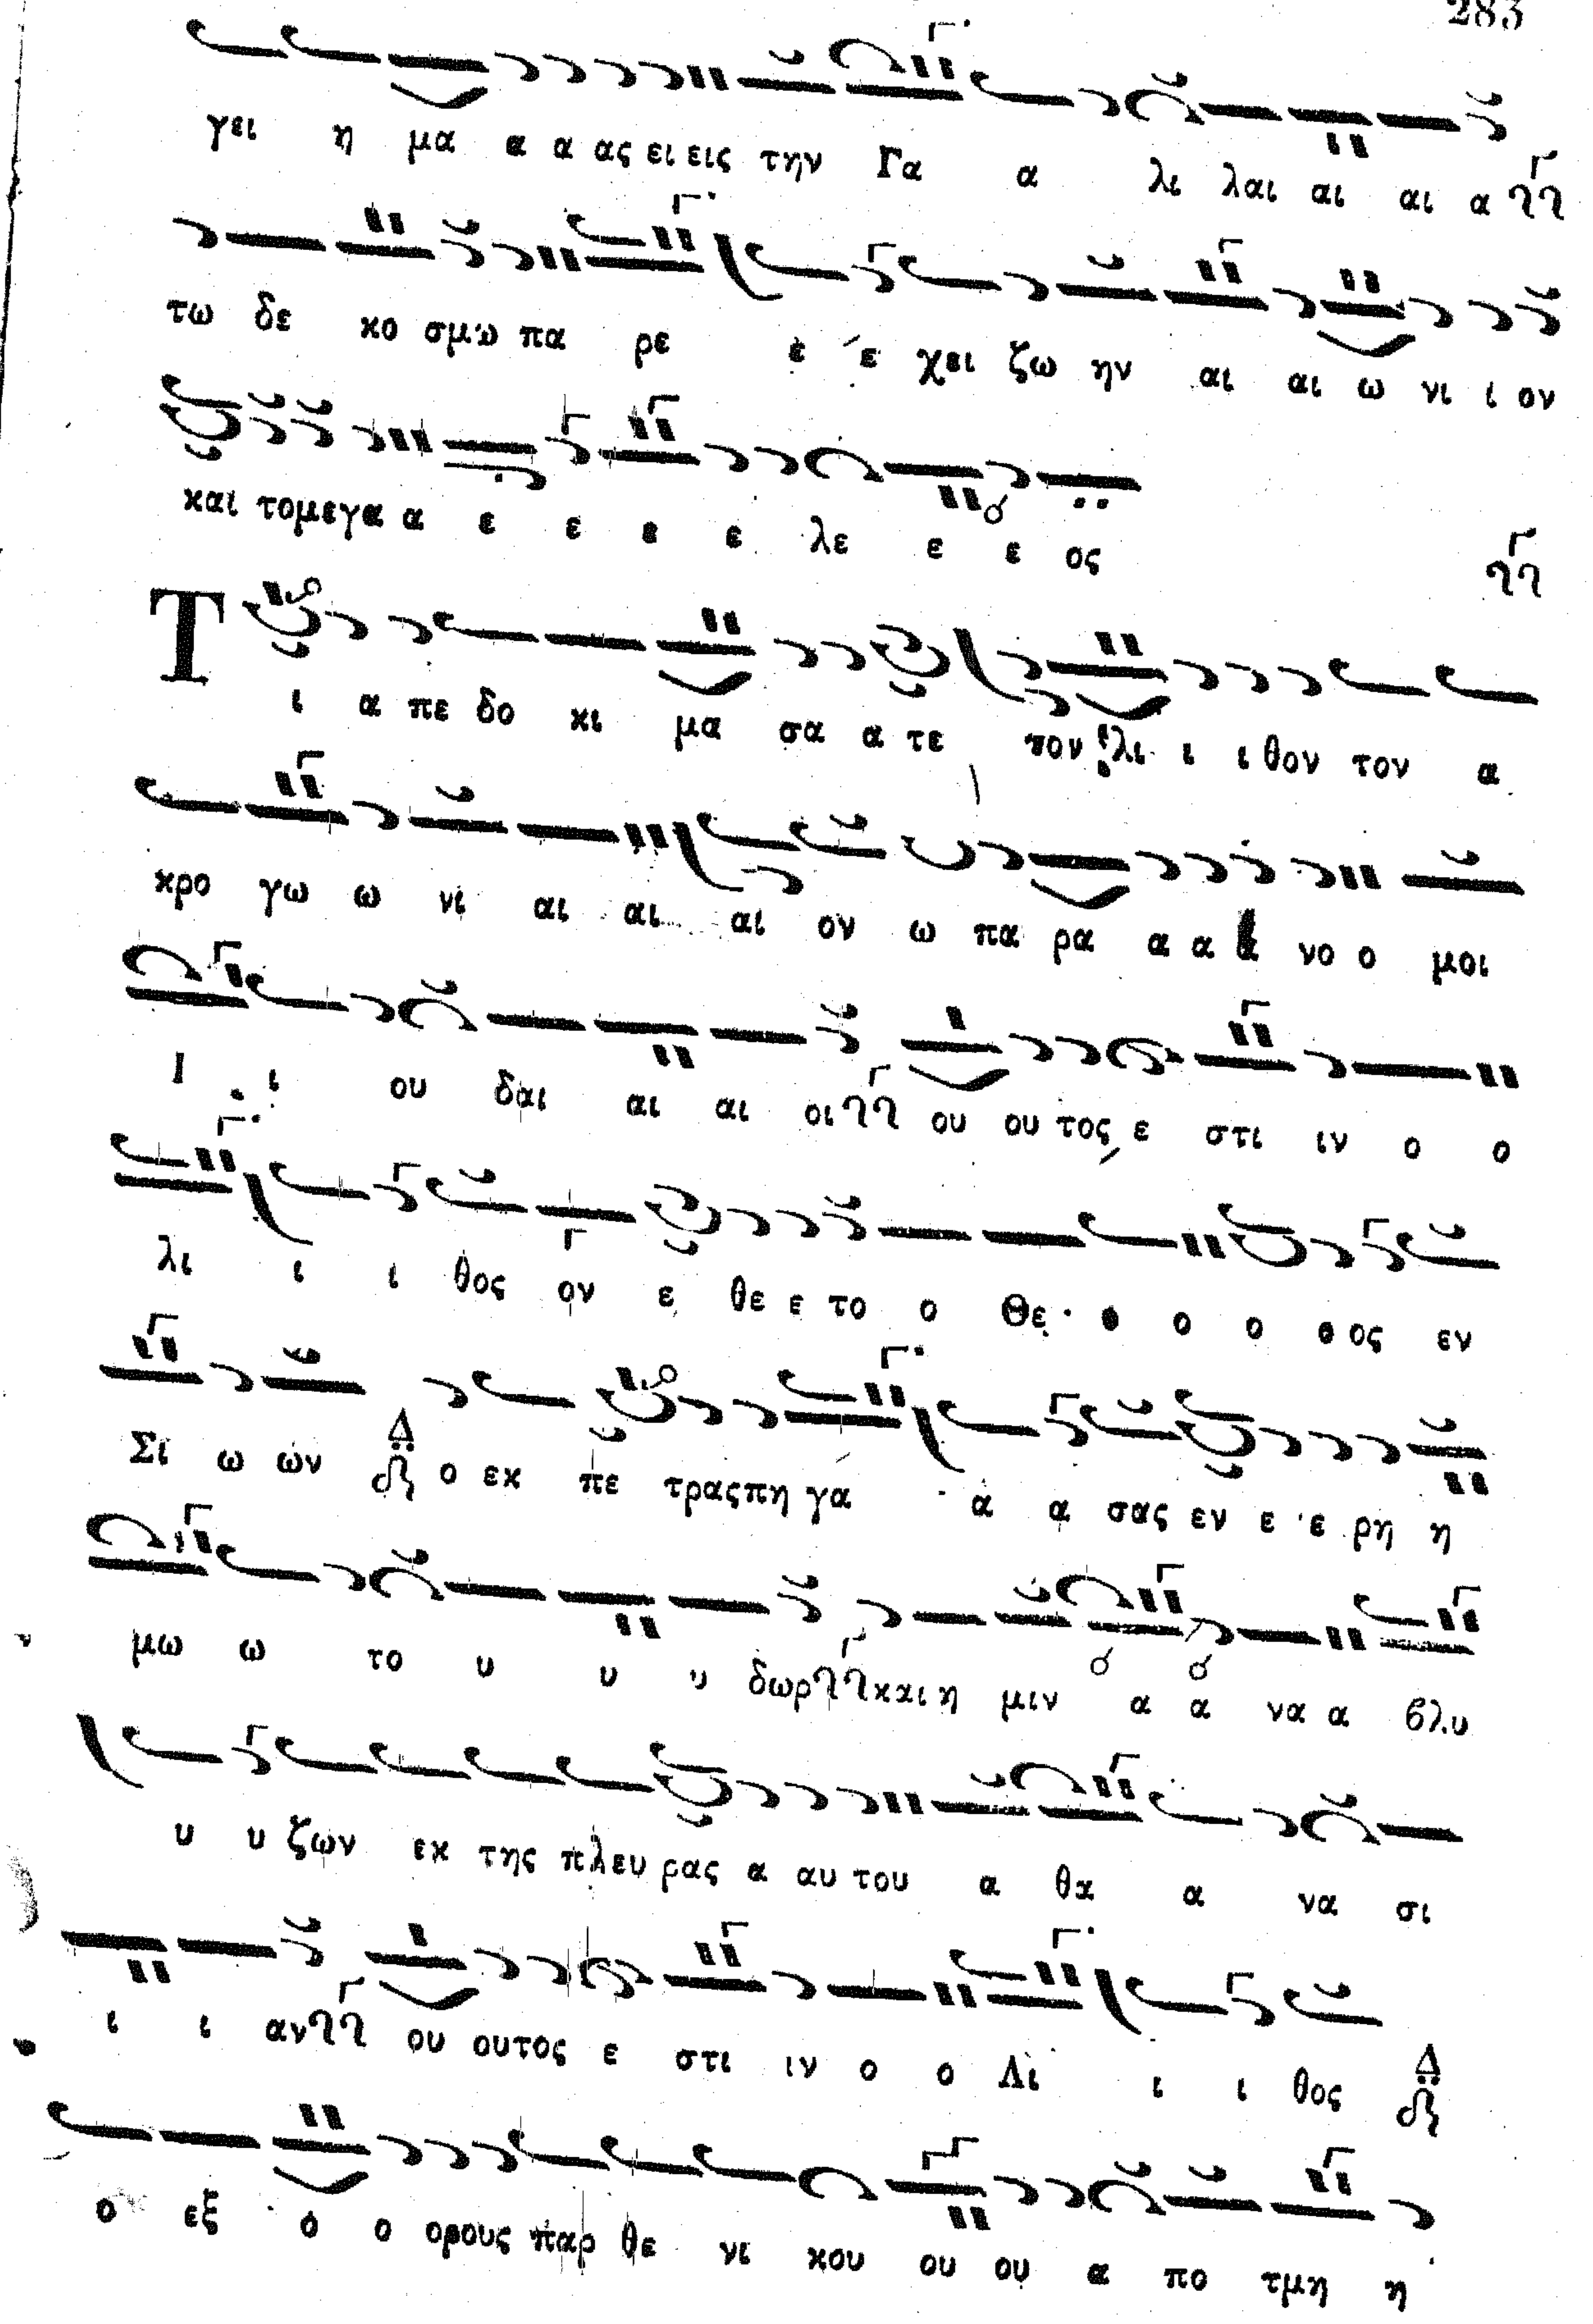 283
γει η μα α α ας ει εις την Γα α λι λαι αι αι α
τω δε κο σμω πα ρε ε ε χει ζω ην αι αι ω νι ι ον
και το με γα α ε ε ε ε λε ε ε ος
Τ ι α πε δο κι μα σα α τε τον λι ι ι θον τον α
κρο γω ω νι αι αι αι ον ω πα ρα α α α νο ο μοι
Ι ι ου δαι αι αι οι ου ου τος ε στι ιν ο ο
λι ι ι θος ον ε θε ε το ο Θε ο ο ο ο ος εν
Σι ω ων Δ ο εκ πε τρας πη γα α α σας εν ε ε ρη η
μω ω το υ υ υ δωρ και η μιν α α να α βλυ
υ υ ζων εκ της πλευ ρας α αυ του α θα α να σι
ι ι αν ου ουτος ε στι ιν ο ο Λι ι ι θος Δ
ο εξ ο ο ορους παρ θε νι κου ου ου α πο τμη η